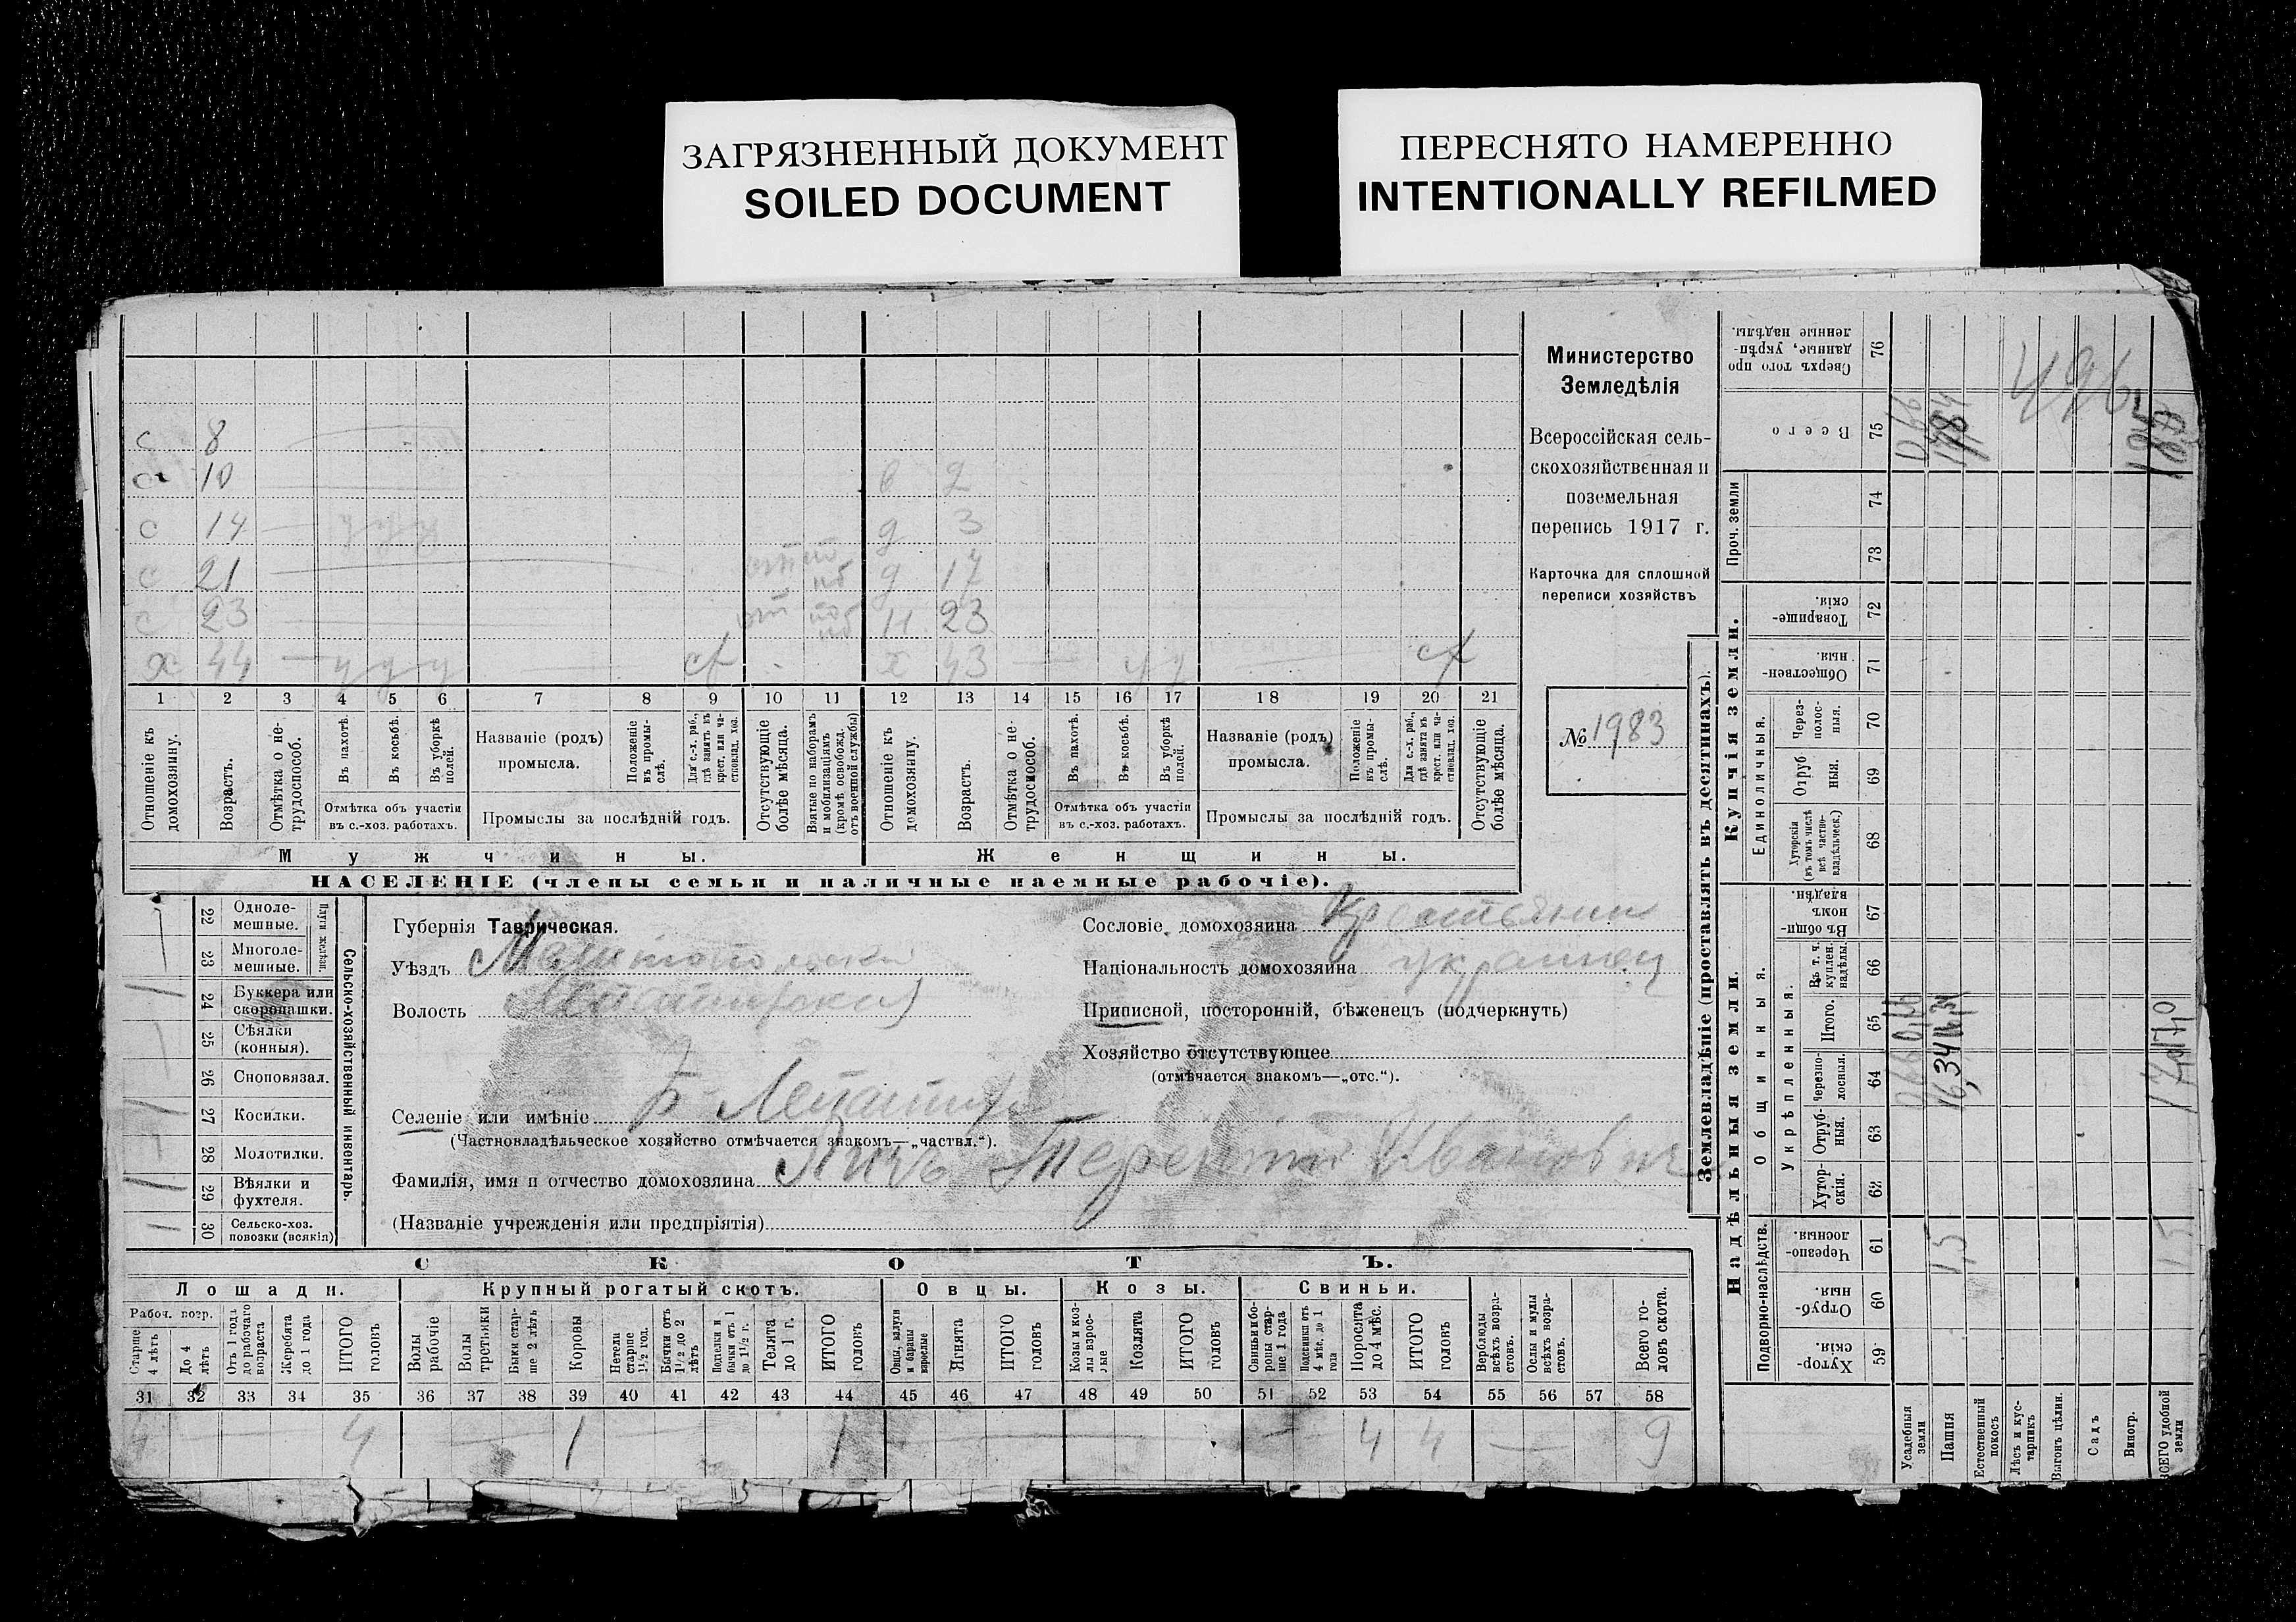 ЗАГРЯЗНЕННЫЙ ДОКУМЕНТ
SOILED DOCUMENT
ПЕРЕСНЯТО НАМЕРЕННО
INTENTIONALLY REFILMED
Министерство
Земледѣлія
Всероссійская сель-
скохозяйственная и
поземельная
перепись 1917 г.
Карточка для сплошной
переписи хозяйствъ
№ 1983
с 8
10
с 14 у у у
с 21
с 23
х 44 у у у
в 2
д 3
д 17
н 23
х 43 у у
1 2 3 4 5 6 7 8 9 10 11 12 13 14 15 16 17 18 19 20 21
Отношеніе къ домохозяину.
Возрастъ.
Отмѣтка о не-трудоспособ.
Въ пахотѣ.
Въ косьбѣ.
Въ уборкѣ полей.
Отмѣтка объ участіи
въ с.-хоз. работахъ.
Названіе (родъ)
промысла.
Положеніе въ промы-слѣ.
Для с.-х. раб., гдѣ занятъ въ крест. или ча-стновлад. хоз.
Промыслы за послѣдній годъ.
Отсутствующіе болѣе мѣсяца.
Взятые по наборамъ и мобилизаціямъ (кромѣ освобожд. отъ военной службы)
Отношеніе къ домохозяину.
Возрастъ.
Отмѣтка о не-трудоспособ.
Въ пахотѣ.
Въ косьбѣ.
Въ уборкѣ полей.
Отмѣтка объ участіи
въ с.-хоз. работахъ.
Названіе (родъ)
промысла.
Положеніе въ промы-слѣ.
Для с.-х. раб., гдѣ занята въ крест. или ча-стновлад. хоз.
Промыслы за послѣдній годъ.
Отсутствующіе болѣе мѣсяца.
Мужчины.
Женщины.
НАСЕЛЕНІЕ (члены семьи и наличные наемные рабочіе).
22 Однолемешные.
23 Многолемешные.
Плуги желѣзн.
24 Буккера или скоропашки.
25 Сѣялки (конныя).
26 Сноповязал.
27 Косилки.
28 Молотилки.
29 Вѣялки и фухтеля.
30 Сельско-хоз. повозки (всякія)
Сельско-хозяйственный инвентарь.
Губернія Таврическая.
Уѣздъ Мелитопольскій
Волость
Селеніе или имѣніе Б
(Частновладѣльческое хозяйство отмѣчается знакомъ—„частвл.“).
Фамилія, имя и отчество домохозяина Терентій Ивановичъ
(Названіе учрежденія или предпріятія)
Сословіе домохозяина Крестьянин
Національность домохозяина украинец
Приписной, посторонній, бѣженецъ (подчеркнуть)
Хозяйство отсутствующее
(отмѣчается знакомъ—„отс.“).
СКОТЪ.
Лошади.
Крупный рогатый скотъ.
Овцы.
Козы.
Свиньи.
Рабоч. возр.
Старше 4 лѣтъ
До 4 лѣтъ
Отъ 1 года до рабочаго возраста
Жеребята до 1 года
ИТОГО головъ
Волы рабочіе
Волы третьяки
Быки старше 2 лѣтъ
Коровы
Нетели старше 1½ год.
Бычки отъ 1½ до 2 лѣтъ
Телки и бычки отъ 1 до 1½ г.
Телята до 1 г.
ИТОГО головъ
Овцы, валухи и бараны взрослые
Ягнята
ИТОГО головъ
Козы и козлы взрослые
Козлята
ИТОГО головъ
Свиньи и боровы старше 1 года
Подсвинки отъ 4 мѣс. до 1 года
Поросята до 4 мѣс.
ИТОГО головъ
Верблюды всѣхъ возрастовъ.
Ослы и мулы всѣхъ возрастовъ.
Всего головъ скота.
31 32 33 34 35 36 37 38 39 40 41 42 43 44 45 46 47 48 49 50 51 52 53 54 55 56 57 58
4 4 1 1 4 4 9
Землевладѣніе (проставлять въ десятинахъ).
Надѣльныя земли.
Купчія земли.
Проч. земли
Подворно-наслѣдств.
Общинныя.
Укрѣпленныя.
Единоличныя.
Хуторскія. 59
Отрубныя. 60
Черезполосныя. 61
Хуторскія. 62
Отрубныя. 63
Черезполосныя. 64
Итого. 65
Въ т. ч. куплен. надѣлы. 66
Въ общинномъ владѣн. 67
Хуторскія (въ томъ числѣ всѣ частновладѣльческ.) 68
Отрубныя. 69
Черезполосныя. 70
Общественныя. 71
Товарищескія. 72
73
74
Всего 75
Сверхъ того проданные, укрѣпленные надѣлы. 76
Усадебныя земли
Пашня
Естественный покосъ
Лѣсъ и кустарникъ
Выгонъ цѣлин.
Садъ
Виногр.
ВСЕГО удобной земли
1,5
16,34
496